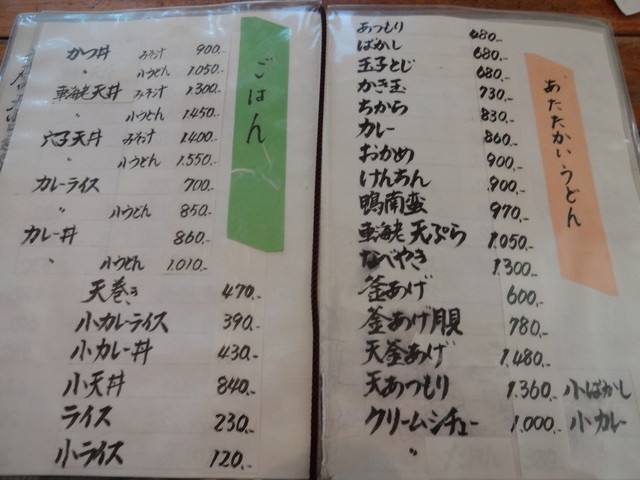 ごはん
かつ丼 みそ汁 900.-
〃 小うどん 1.050.-
車海老天丼 みそ汁 1.300.-
〃 小うどん 1.450.-
穴子天丼 みそ汁 1.400.-
〃 小うどん 1.550.-
カレーライス 700.-
〃 小うどん 850.-
カレー丼 860.-
〃 小うどん 1.010.-
天巻き 470.-
小カレーライス 390.-
小カレー丼 430.-
小天丼 840.-
ライス 230.-
小ライス 120.-
あたたかいうどん
あつもり 680.-
ばかし 680.-
玉子とじ 680.-
かき玉 730.-
ちから 830.-
カレー 860.-
おかめ 900.-
けんちん 900.-
鴨南蛮 970.-
車海老天ぷら 1.050.-
なべやき 1.300.-
釜あげ 600.-
釜あげ月見 780.-
天釜あげ 1.480.-
天あつもり 1.360.- 小ばかし
クリームシチュー 1.000.- 小カレー
〃